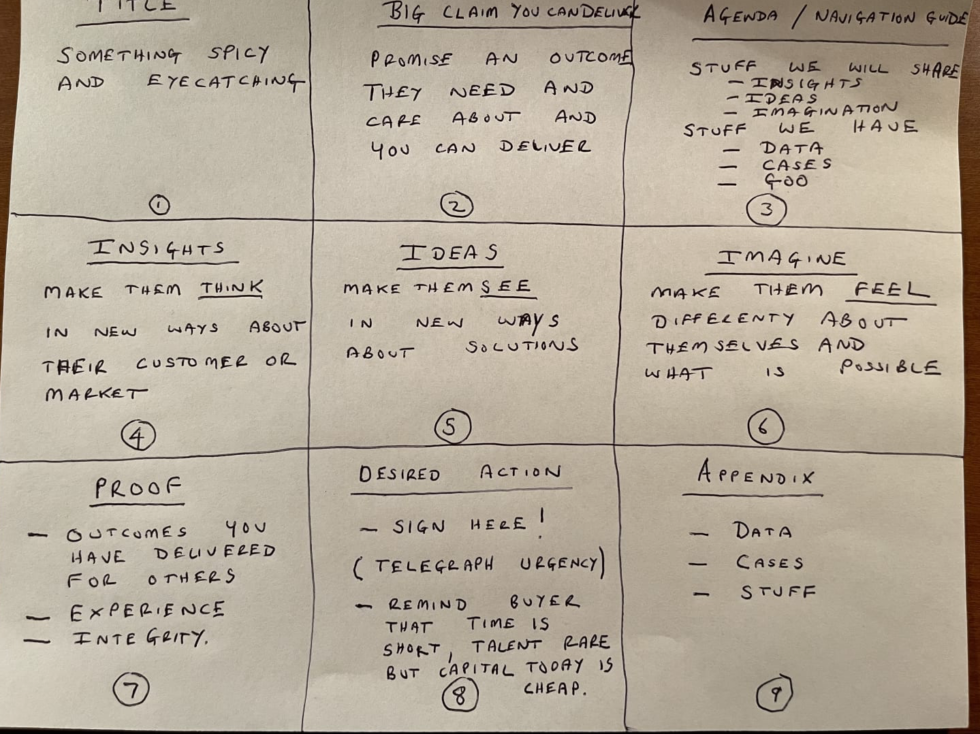 TITLE
SOMETHING SPICY
AND EYECATCHING
①
BIG CLAIM YOU CAN DELIVER
PROMISE AN OUTCOME
THEY NEED AND
CARE ABOUT AND
YOU CAN DELIVER
②
AGENDA / NAVIGATION GUIDE
STUFF WE WILL SHARE
– INSIGHTS
– IDEAS
– IMAGINATION
STUFF WE HAVE
– DATA
– CASES
– GOO
③
INSIGHTS
MAKE THEM THINK
IN NEW WAYS ABOUT
THEIR CUSTOMER OR
MARKET
④
IDEAS
MAKE THEM SEE
IN NEW WAYS
ABOUT SOLUTIONS
⑤
IMAGINE
MAKE THEM FEEL
DIFFERENTY ABOUT
THEMSELVES AND
WHAT IS POSSIBLE
⑥
PROOF
– OUTCOMES YOU
HAVE DELIVERED
FOR OTHERS
– EXPERIENCE
– INTEGRITY.
⑦
DESIRED ACTION
– SIGN HERE!
(TELEGRAPH URGENCY)
– REMIND BUYER
THAT TIME IS
SHORT, TALENT RARE
BUT CAPITAL TODAY IS
CHEAP.
⑧
APPENDIX
– DATA
– CASES
– STUFF
⑨